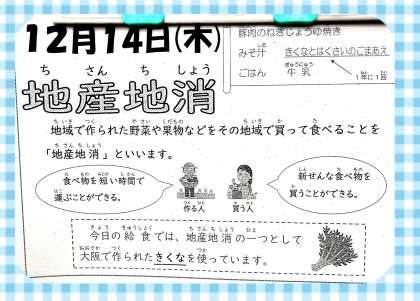 12月14日(木)
豚肉のねぎじょうゆ焼き
みそ汁 きくなとはくさいのごまあえ
ごはん 牛乳
1年に1回
地産地消
地域で作られた野菜や果物などをその地域で買って食べることを
「地産地消」といいます。
食べ物を短い時間で
運ぶことができる。
作る人
買う人
新せんな食べ物を
買うことができる。
今日の給食では、地産地消の一つとして
大阪で作られたきくなを使っています。